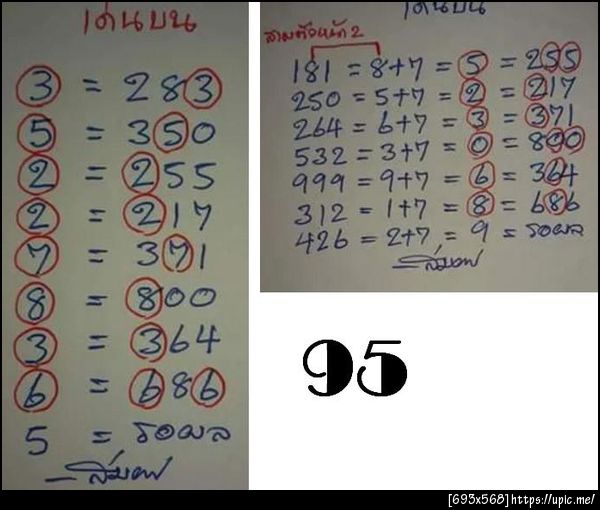 เด่นบน
3 = 283
5 = 350
2 = 255
2 = 217
7 = 371
8 = 800
3 = 364
6 = 686
5 = รอผล
เด่นบน
สามตัวหน้า 2
181 = 8+7 = 5 = 255
250 = 5+7 = 2 = 217
264 = 6+7 = 3 = 371
532 = 3+7 = 0 = 800
999 = 9+7 = 6 = 364
312 = 1+7 = 8 = 686
426 = 2+7 = 9 = รอผล
95
[693x568] https://upic.me/